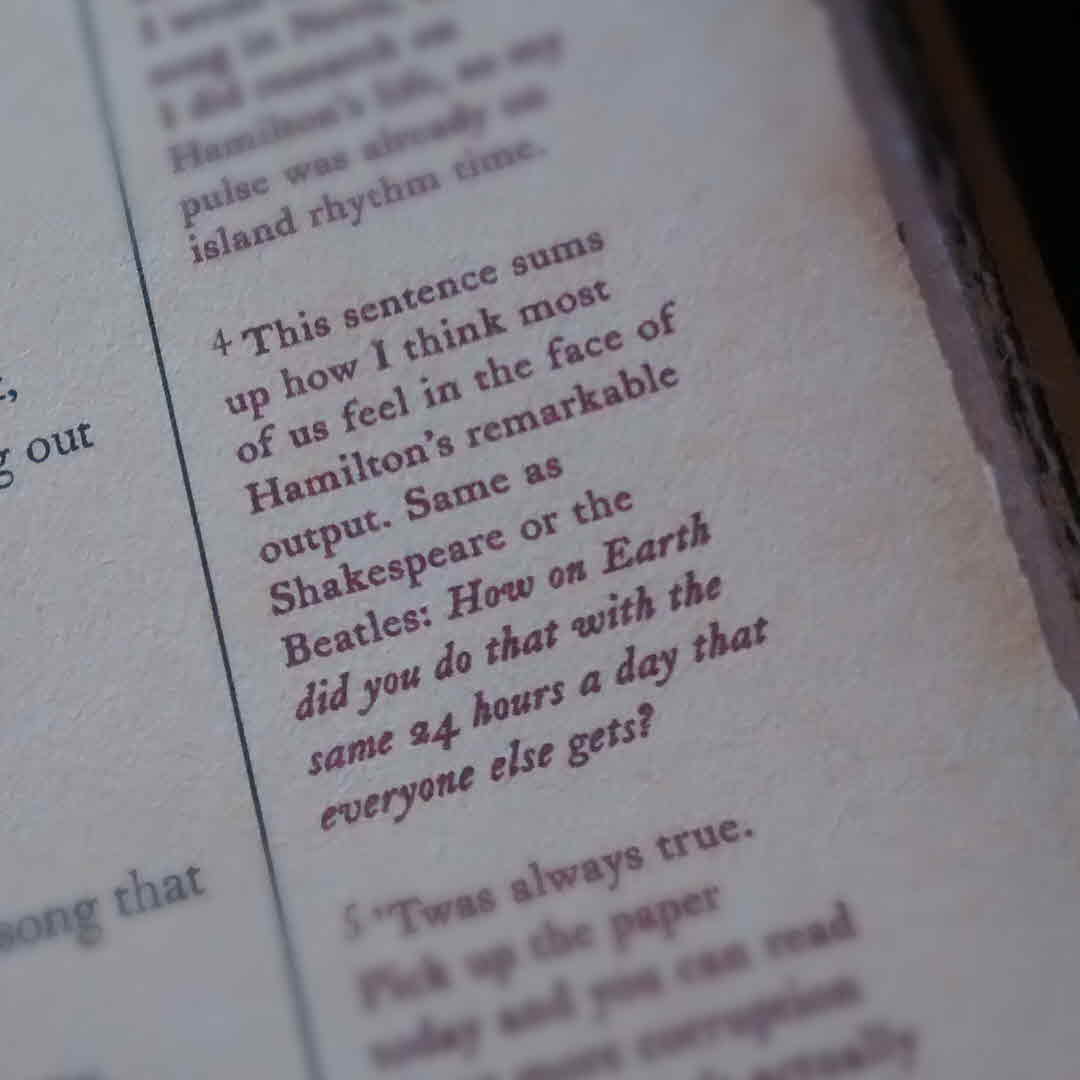 song in
I did research on
Hamilton's life, so my
pulse was already on
island rhythm time.
4 This sentence sums
up how I think most
of us feel in the face of
of Hamilton's remarkable
output. Same as
Shakespeare or the
Beatles: How on Earth
did you do that with the
same 24 hours a day that
everyone else gets?
5 'Twas always true.
Pick up the paper
today and you can read
more corruption
actually
g out
song that